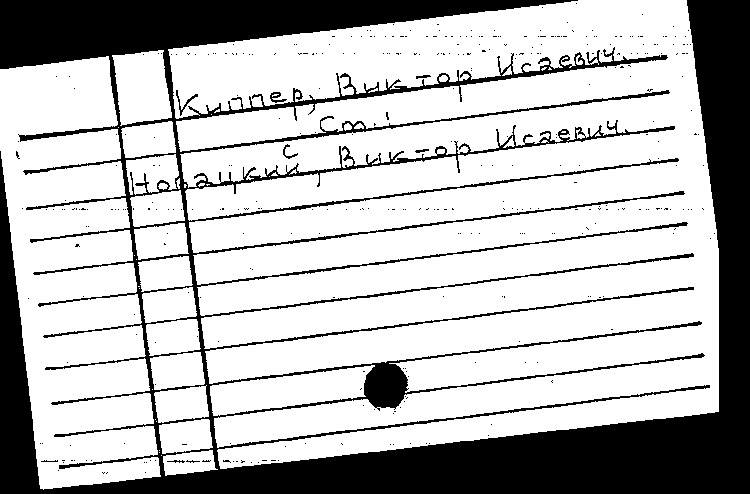 Киппер, Виктор Исаевич.
См.:
Новацкий, Виктор Исаевич.